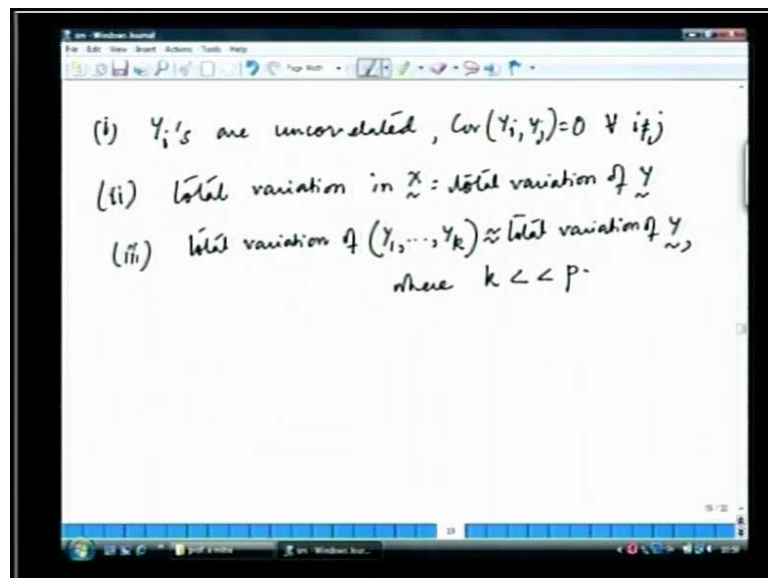 srn - Windows Journal
File Edit View Insert Actions Tools Help
Page Width
(i) Yi's are uncorrelated, Cov(Yi, Yj)=0 ∀ i≠j
(ii) total variation in x̰ = total variation of Y̰
(iii) total variation of (Y1, ..., Yk) ≈ total variation of Y̰,
where k << p.
19